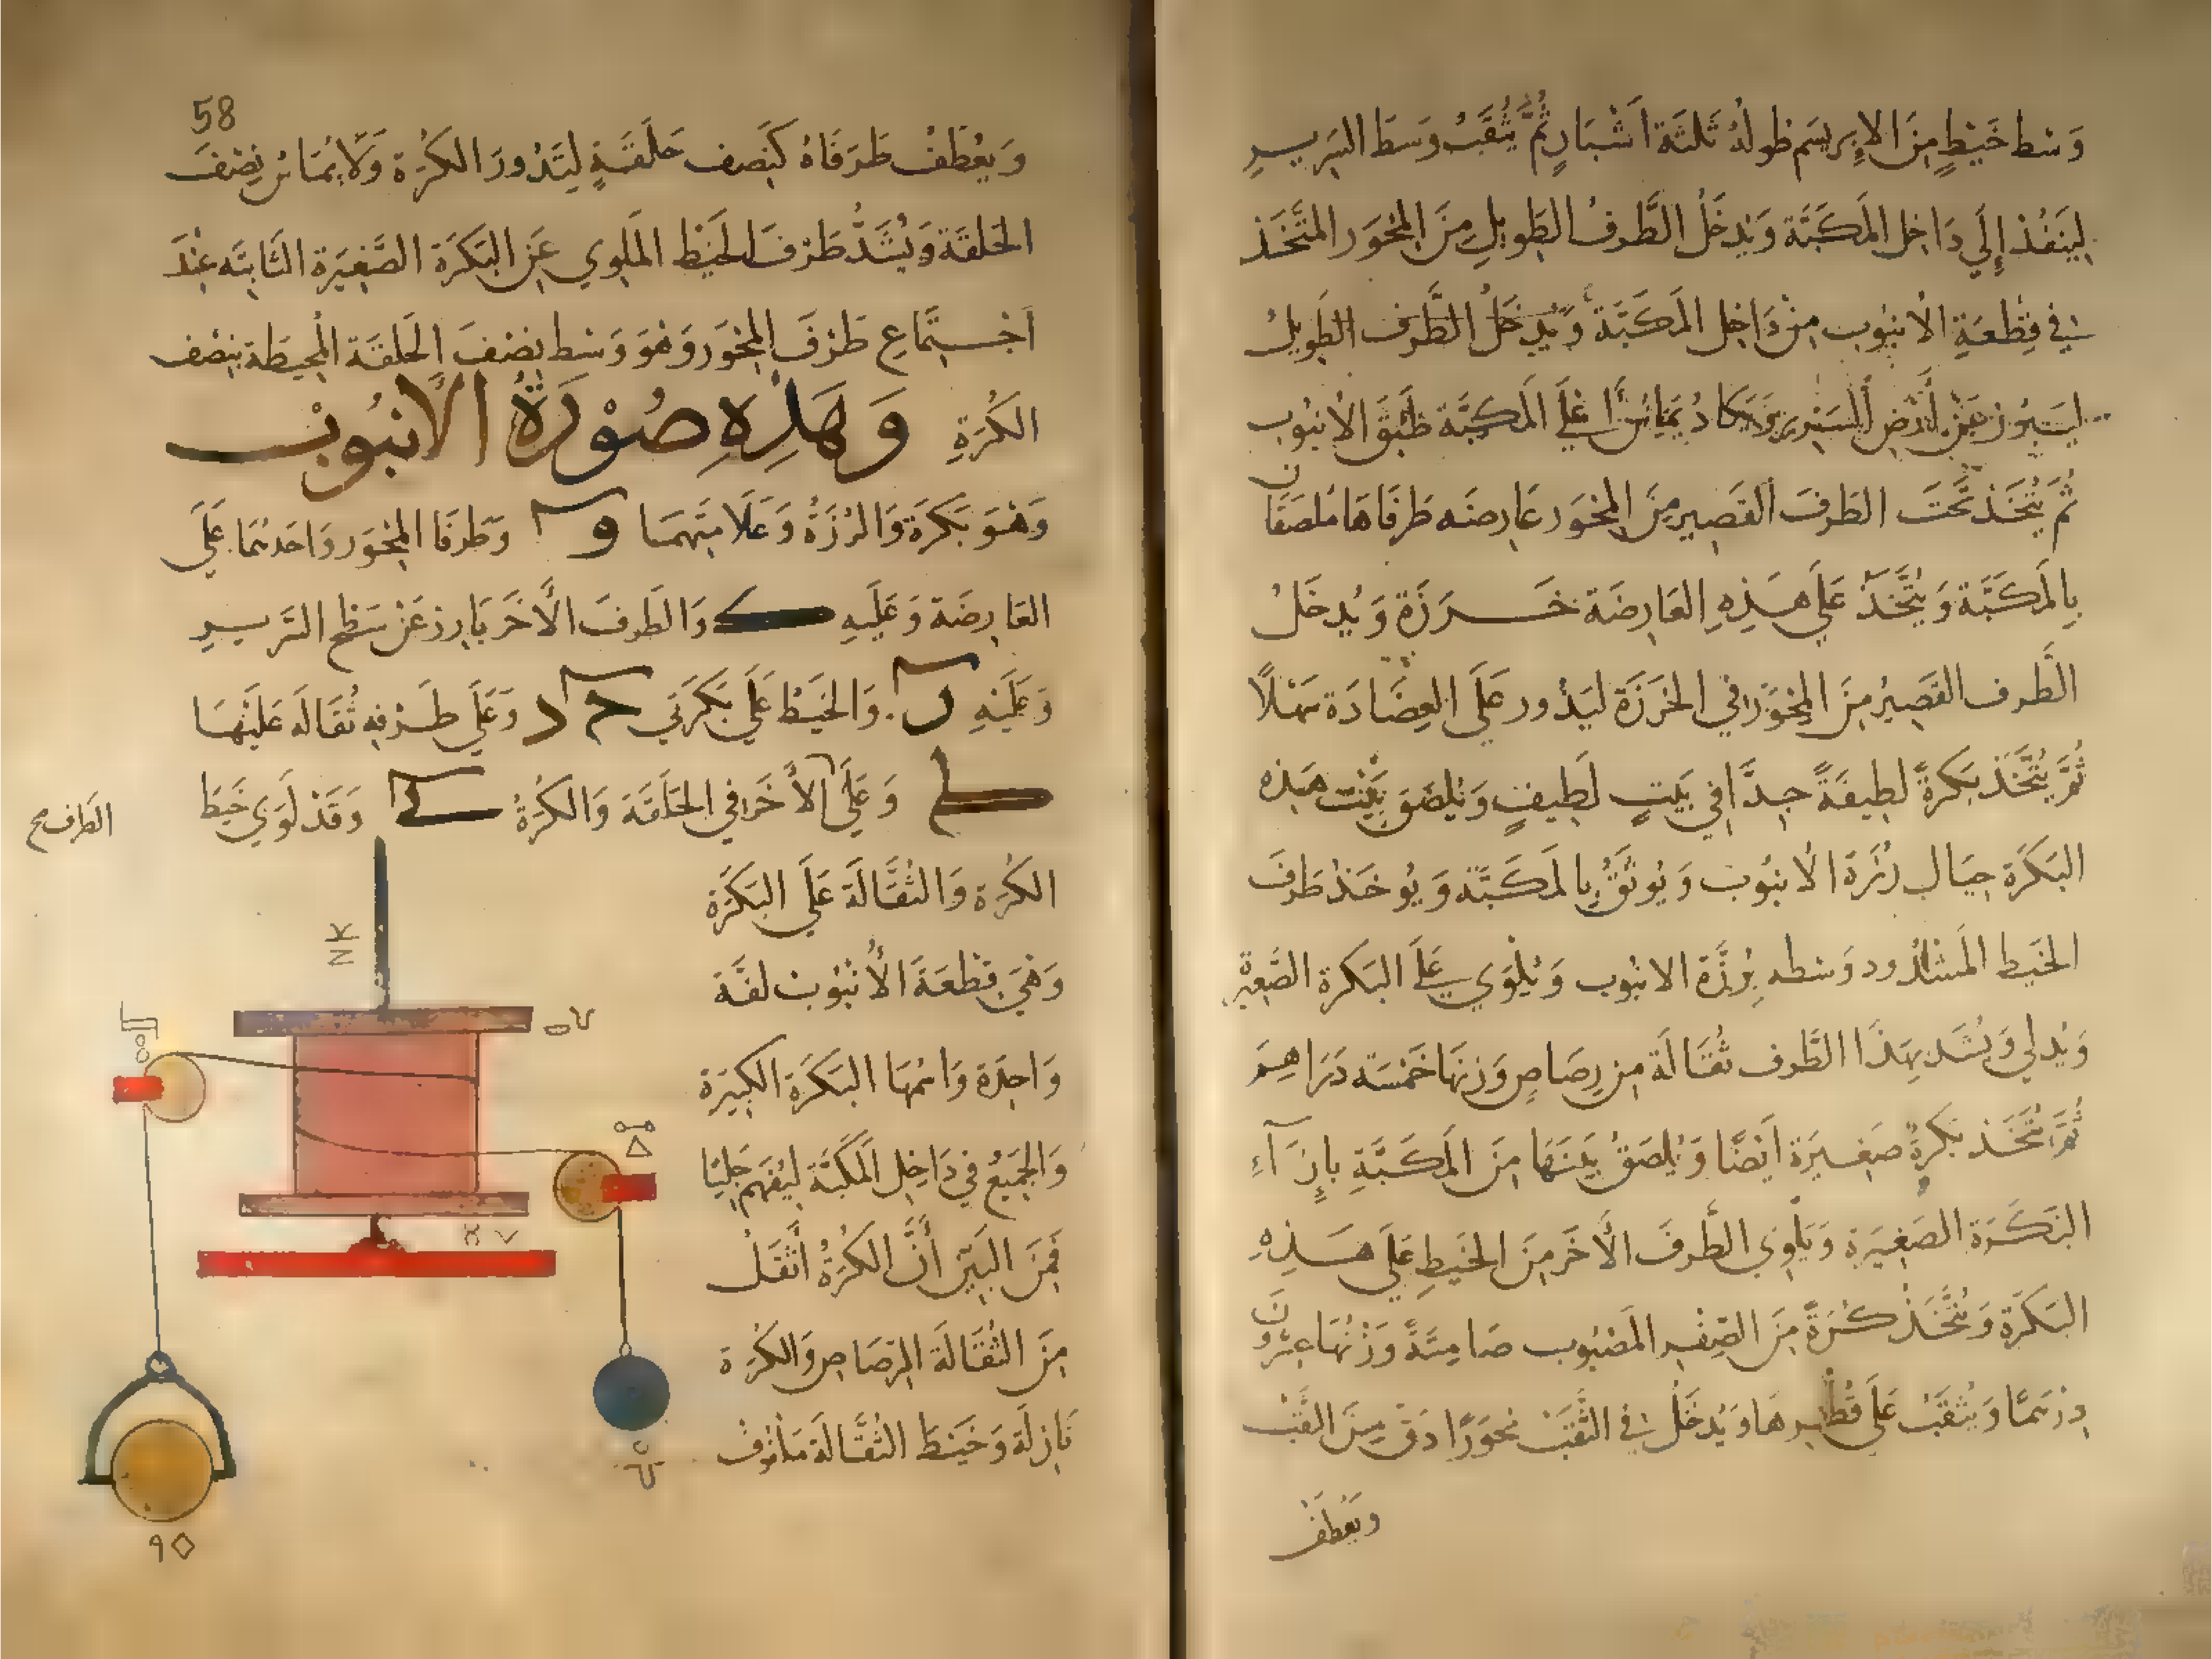 وَسَط خَيْطٍ مِنَ الاِبرِيسَم طولهُ ثَلثَة اَشْبَارٍ ثُمَّ يُثقَبُ وَسَطَ السَّرِيرِ
لِيَنفُذَ إِلَي دَاخِل المكَبَّة وَيُدخَلُ الطَّرفُ الطَوِيل مِنَ المِحْوَر المتَّخَذ
في قِطعَةِ الأُنبُوب مِنْ دَاخِل المكَبَّة وَيُدخَلُ الطَّرف الطَوِيلُ
ليَبرُز عَنْ اَرْض السَّرِير وَيَكادُ يُمَاسُّ اَعْلَي المكبَّة طَبَقَ الأنبُوب
ثُمَّ يُتَّخَذ تَحتَ الطَرفَ القَصِير مِنَ المِحْوَر عَارِضَه طرفَاهَا مُلصَقَان
بِالمكَبَّة وَيُتَّخَذ عَلَي هَذِهِ العَارِضَة خَرزَة وَيُدخَلُ
الطَّرف القَصِيرُ مِنَ المِحْوَر في الخَرَزَة لِيَدُور عَلَى العِضَادَة سَهْلاً
ثُمَّ يُتَّخَذ بَكرَةً لَطِيفَةً جِدًّا في بَيتٍ لَطِيفٍ وَيُلصَق بَيْت هَذِه
البَكَرَة حِيَال رُزَّة الأنبُوب وَيُوثَقُ بِالمكَبَّة وَيُوخَذ طَرفَ
الخَيط المَشدُود وَسَطه بِرُزَّة الانبُوب وَيُلْوَي عَلَي البَكرة الصَّغِيرة
وَيُدلي وَيُشَد بِهَذَا الطَّرف ثُقَالَة مِن رصَاصٍ وَزنهَا خَمْسَة دَرَاهِمَ
ثُمَّ يُتَّخَذ بَكرةٌ صَغِيرَة اَيْضًا وَيُلصَقُ بَيْتهَا مِنَ المكَبَّةِ بإِزَآءِ
البَكَرَة الصَغِيَرة وَيَلْوِي الطَّرفَ الآخَر مِنَ الخَيطِ عَلَي هَذِهِ
البَكَرَة وَيُتَّخَذ كُرَةً مِنَ الصِفْر المَصْبُوب صَامِتَةً وَزْنُهَا عِشْرُونَ
دِرْهَمًا وَيُثقَبُ عَلَي قُطْرِهَا وَيُدخَلُ في الثَّقبُ مِحوَرًا دَقَ مِنَ الثَّقْب
وَيَعْطِفُ
58
وَيعْطفُ طَرَفَاهُ كَنِصف حَلقَةٍ لِتَدُورَ الكُرَة وَلَا يُمَاسُ نِصْفَ
الحَلقَة وَيُشَدُّ طَرْفَ الخَيْط المَلوي عَنِ البَكَرَة الصَّغِيَرة الثَابِتَه عِنْدَ
اَجْتِمَاعِ طَرْفَ المِحْوَر وَهُوَ وَسَط نِصْفَ الحَلقَة المُحِيطَة بِنِصْف
الكُرَةِ وَهَذِهِ صُوْرَةُ الاَنبُوبْ
وَهُوَ بَكَرَة وَالرُزَةُ وَعَلَامتهمَا و وَطَرفَا المِحْوَر وَاحَدهُمَا عَلَي
العَارِضَة وَعَلَيهِ ك وَالطَرفَ الآخَر بَارِز عَنْ سَطح السَّرِيرِ
وَعَليَهِ ن وَالخَيْط عَلَي بَكَرَتي ح د وَعَلَي طَرفِه ثُقَالَه عَلَيْهَا
وَعَلَي الأخَر في الحَلقَة وَالكُرَةُ وَقَدْ لَوَي خَيط
الطَرف صح
الكُرَة وَالثُقَّالَة عَلَي البَكَرَة
وَهِيَ قِطْعَةَ الأُنْبُوبْ لفَّة
وَاحِدَة وَاسمُهَا البَكَرَة الكَبِيَرة
وَالجَمِيْعُ في دَاخِل المكَبَّة لِيُفهَم جَلِيًا
فَمِنَ البَيِّن أَنَّ الكُرَةُ أَثْقَلُ
مِنَ الثُقَّالَة الرَصَاصِ وَالكُرَة
نَازِلَة وَخَيط الثُقَّالَة مَلْفُوفُ
NK